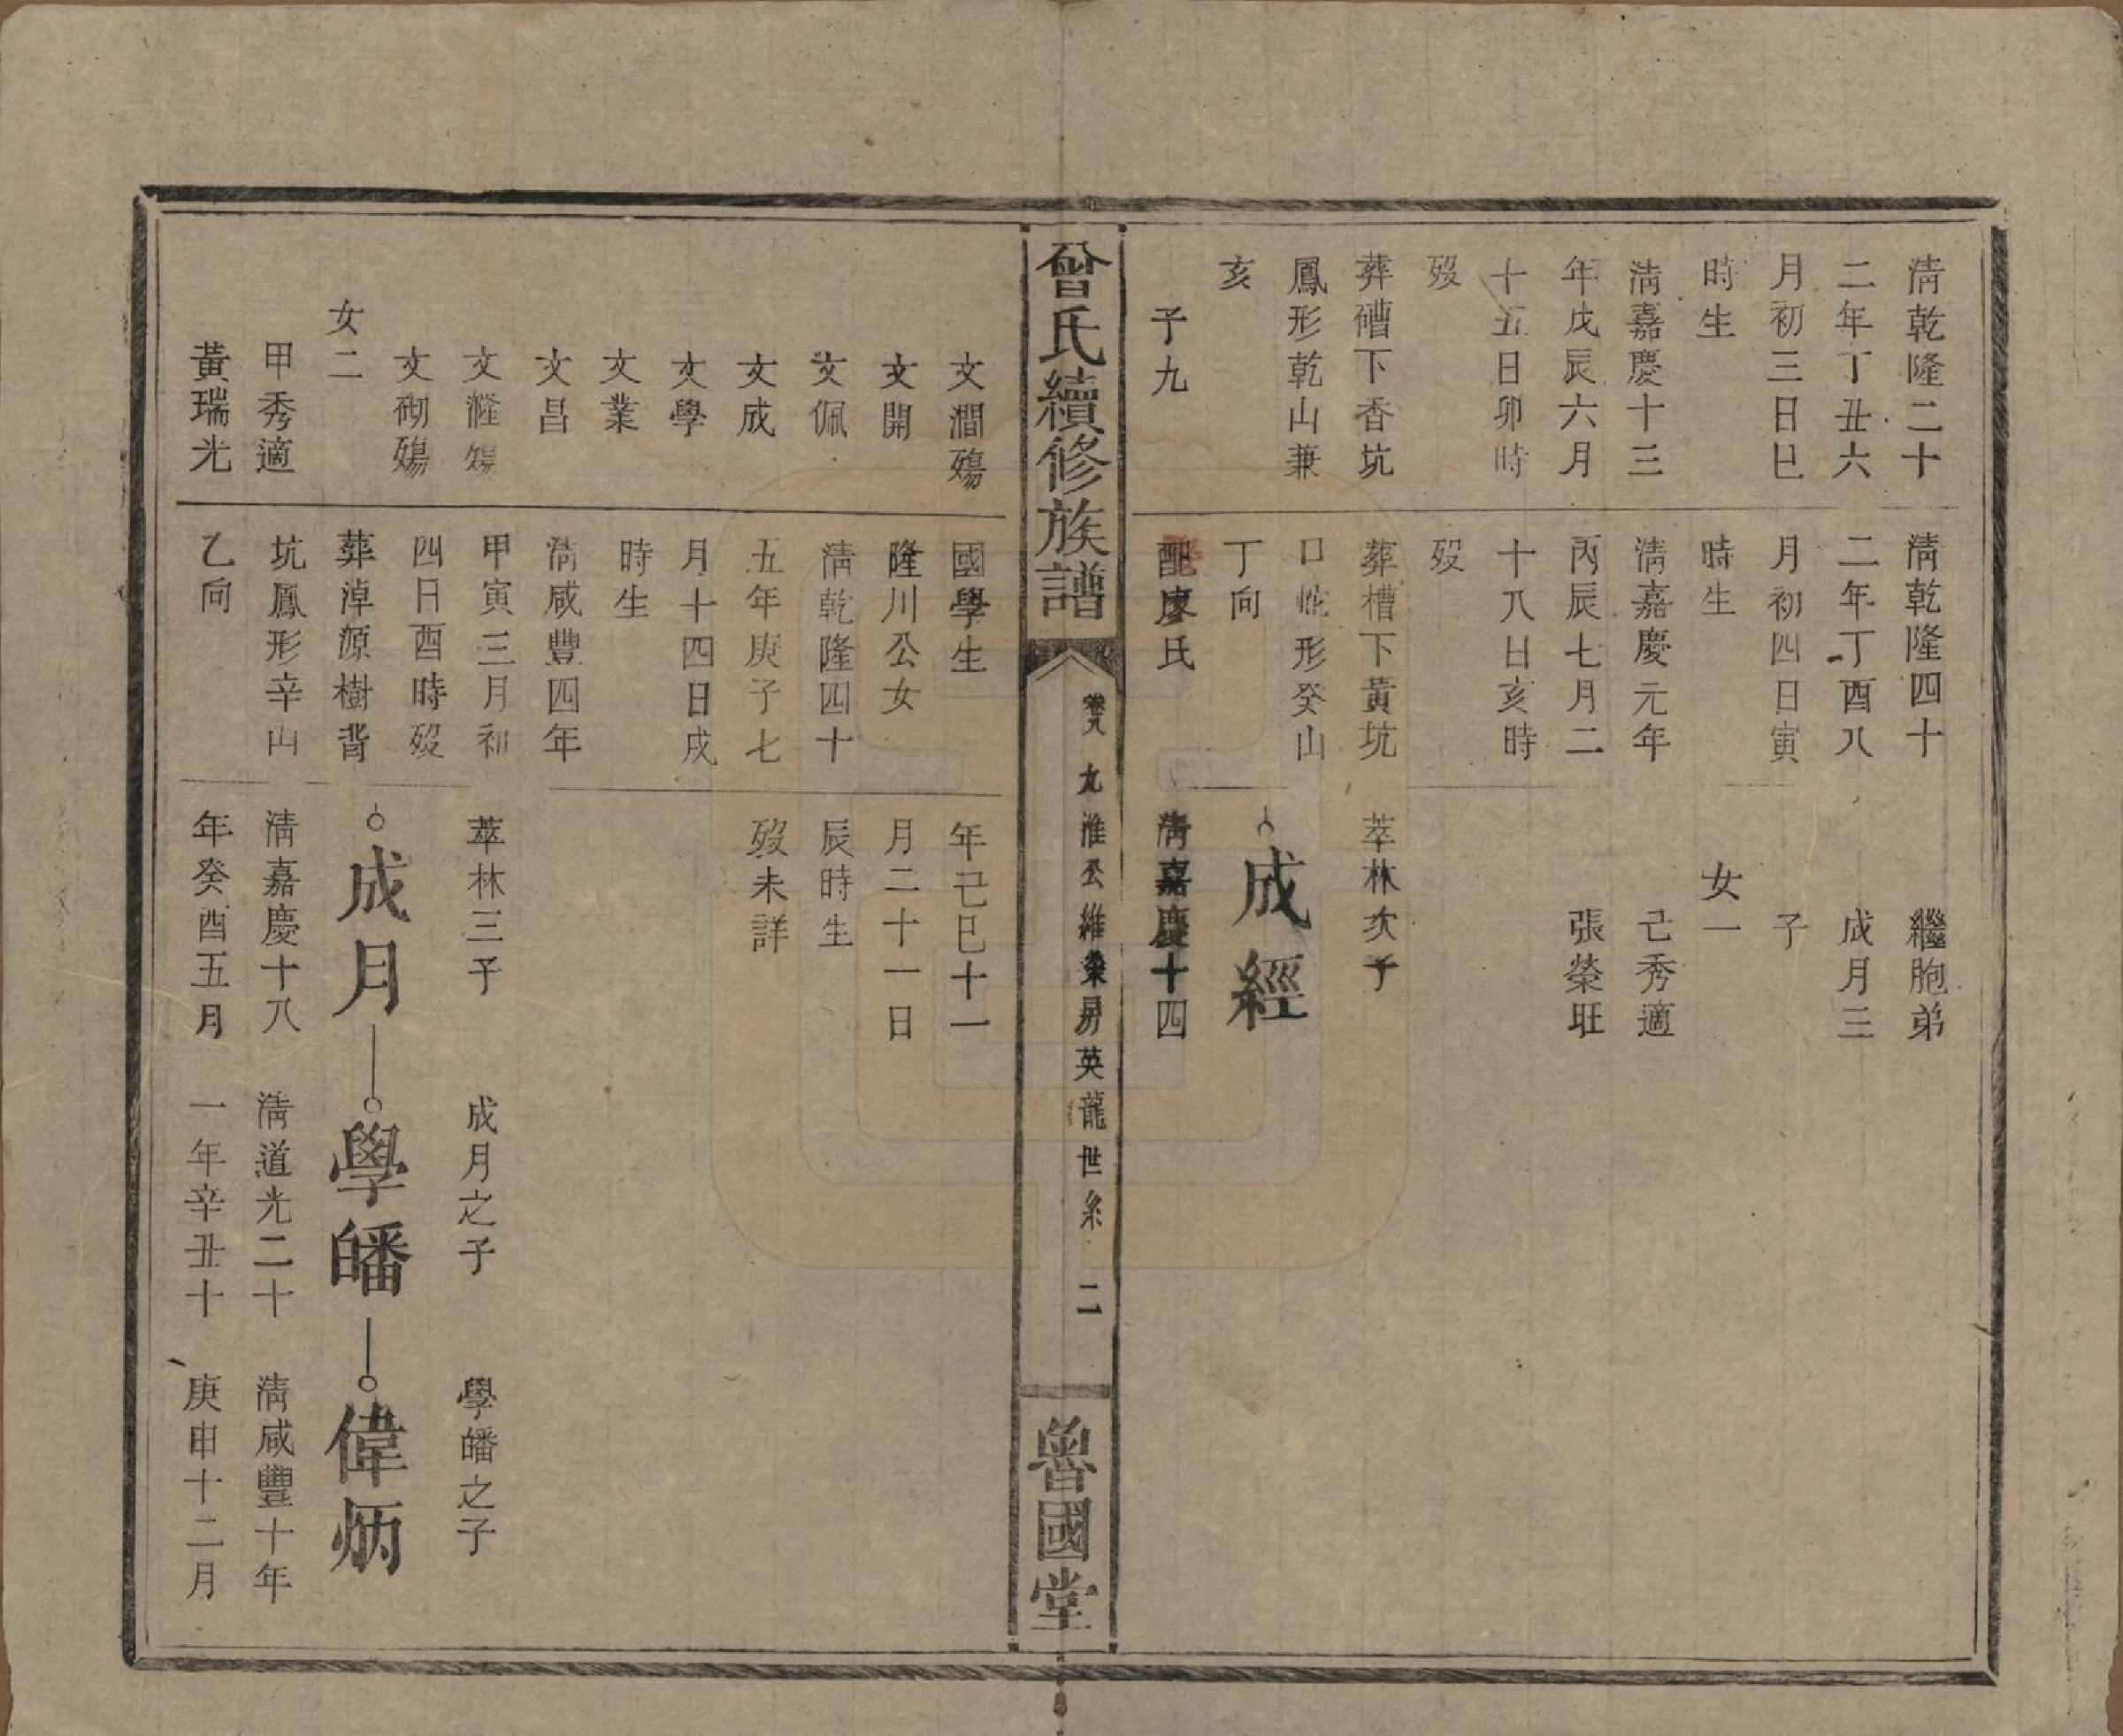 清乾隆二十
二年丁丑六
月初三日巳
時生
清嘉慶十三
年戊辰六月
十五日卯時
歿
葬礄下香坑
鳳形乾山兼
亥
子九
清乾隆四十
二年丁酉八
月初四日寅
時生
清嘉慶元年
丙辰七月二
十八日亥時
歿
葬槽下黃坑
口蛇形癸山
丁向
配廖氏
繼胞弟
成月三
子
女一
己秀適
張榮旺
萃林次子
成經
清嘉慶十四
曾氏續修族譜
卷九
九淮公維榮房英龍世系
二
魯國堂
文澗殤
文開
文佩
文成
文學
文業
文昌
文漋殤
文砌殤
女二
甲秀適
黃瑞光
國學生
隆川公女
清乾隆四十
五年庚子七
月十四日戌
時生
清咸豐四年
甲寅三月初
四日酉時歿
葬淖源樹背
坑鳳形辛山
乙向
年己巳十一
月二十一日
辰時生
歿未詳
萃林三子
成月
清嘉慶十八
年癸酉五月
成月之子
學皤
清道光二十
一年辛丑十
學皤之子
偉炳
清咸豐十年
庚申十二月